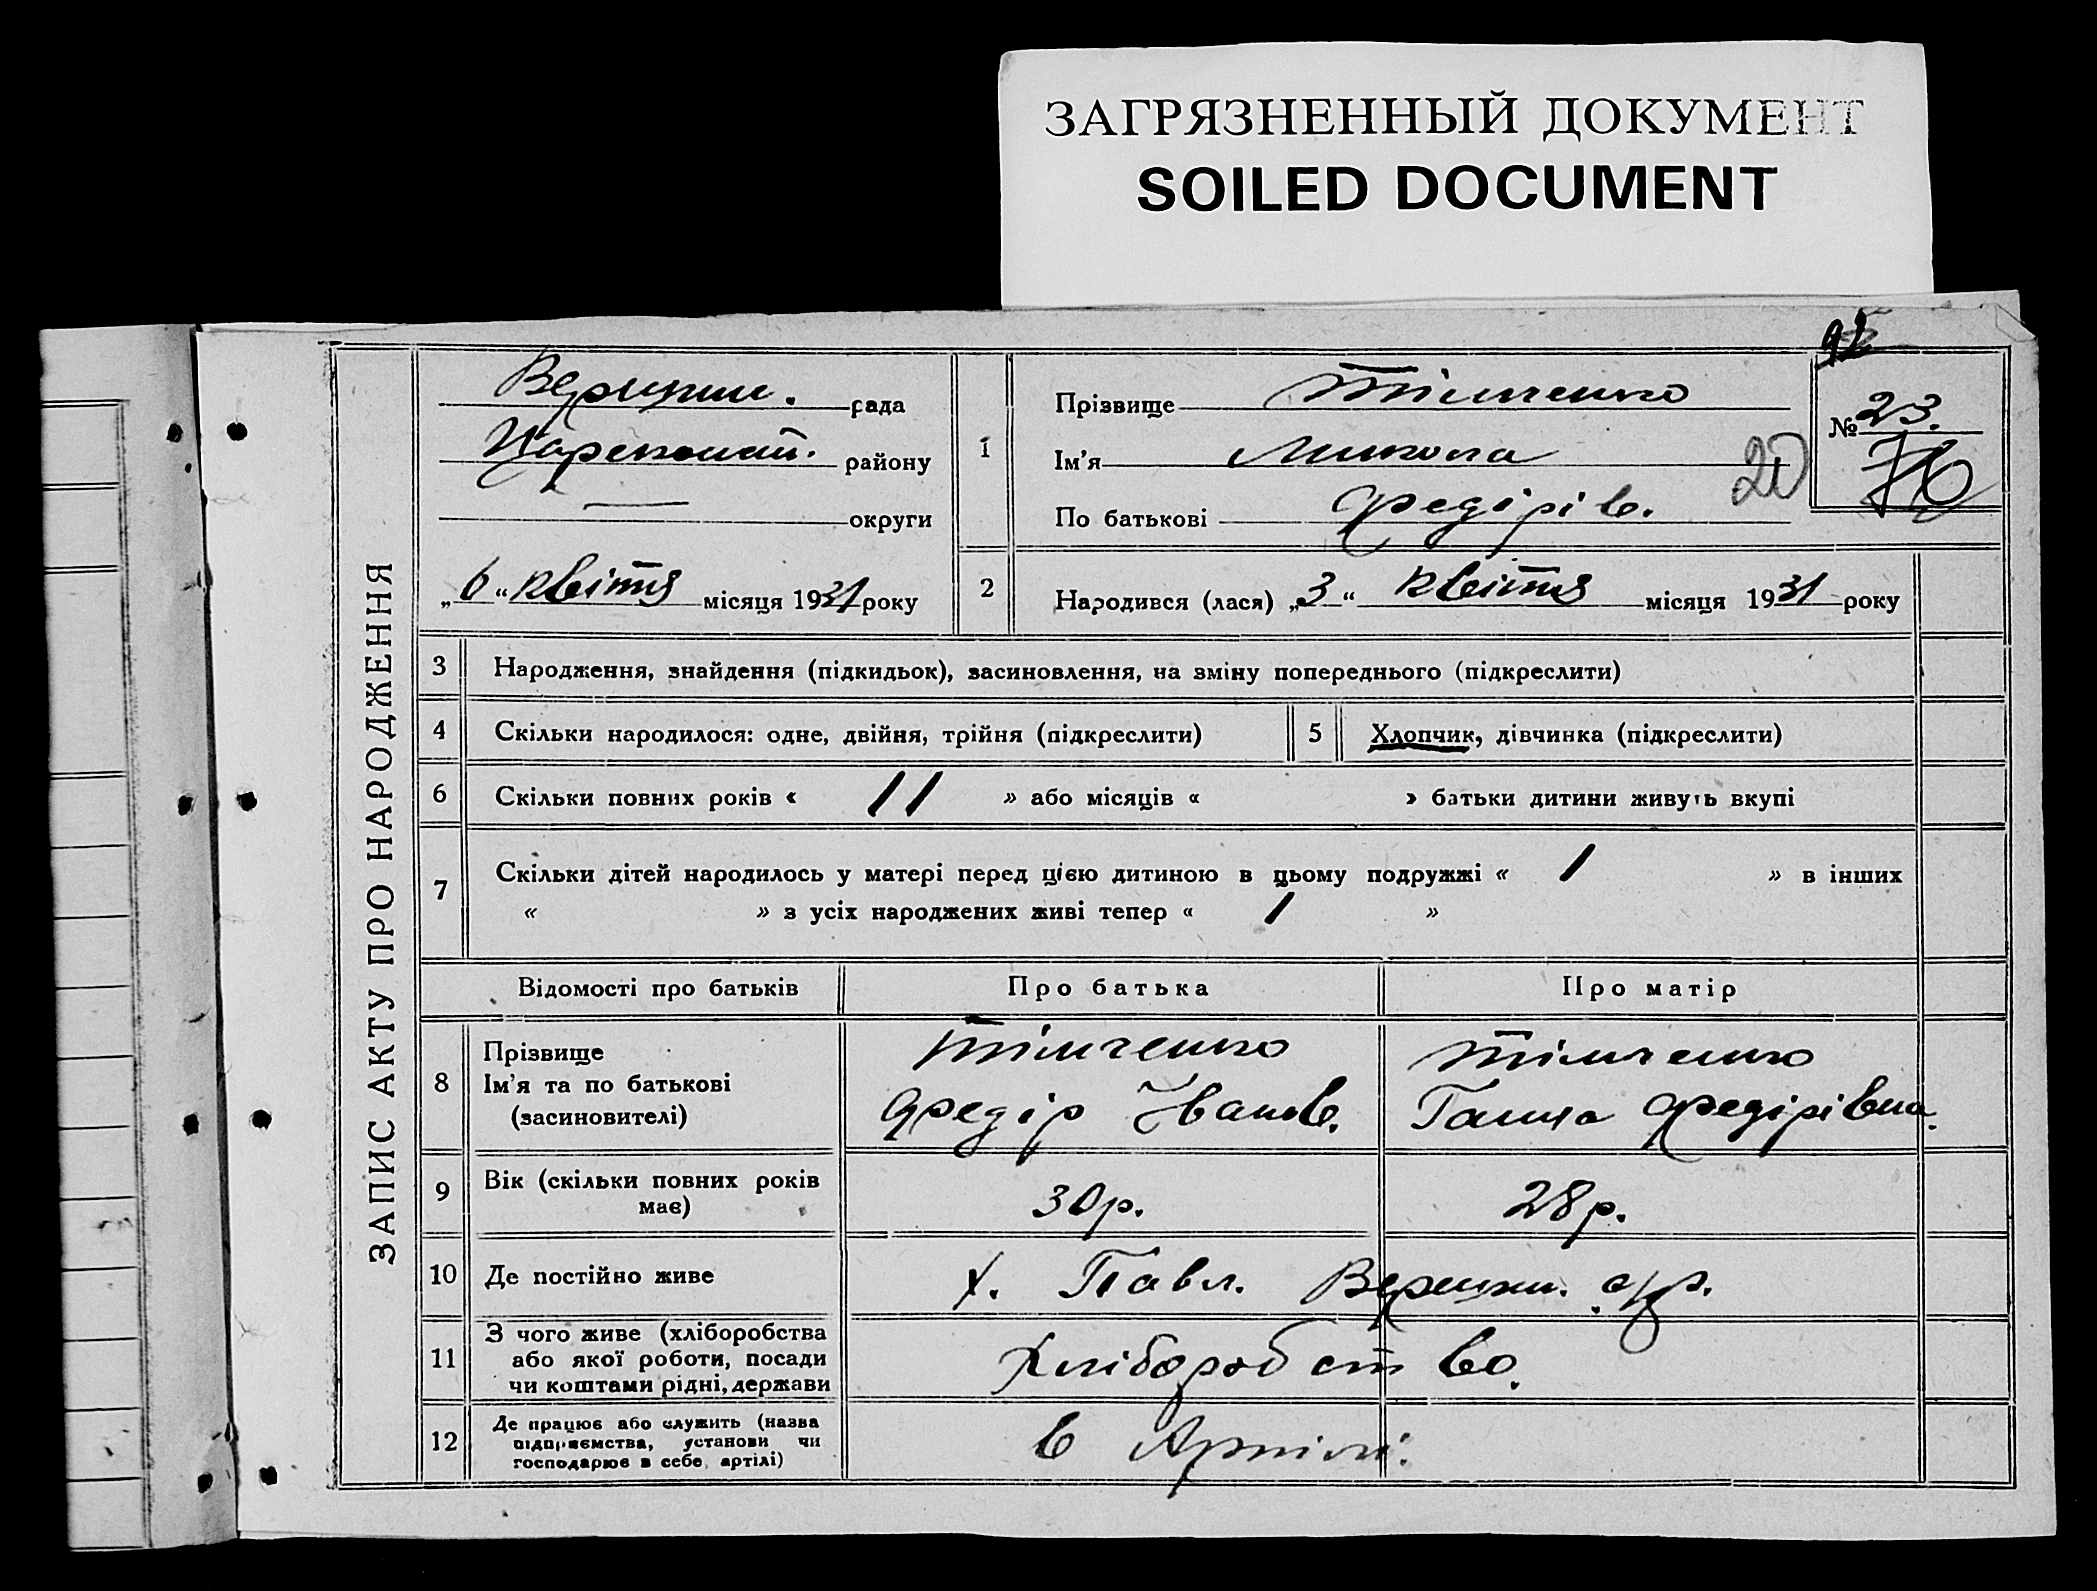 ЗАГРЯЗНЕННЫЙ ДОКУМЕНТ
SOILED DOCUMENT
ЗАПИС АКТУ ПРО НАРОДЖЕННЯ
рада
району
округи
„6“ квітня місяця 1931 року
1
Прізвище Тімченко
Ім'я Микола
По батькові Федірів.
№ 23.
76
20
2 Народився (лася) „3“ квітня місяця 1931 року
3 Народження, знайдення (підкидьок), засиновлення, на зміну попереднього (підкреслити)
4 Скільки народилося: одне, двійня, трійня (підкреслити) 5 Хлопчик, дівчинка (підкреслити)
6 Скільки повних років « 11 » або місяців « » батьки дитини живуть вкупі
7 Скільки дітей народилось у матері перед цією дитиною в цьому подружжі « 1 » в інших
« » з усіх народжених живі тепер « 1 »
Відомості про батьків Про батька Про матір
8 Прізвище Тімченко Тімченко
Ім'я та по батькові Федір Іванов. Ганна Федірівна.
(засиновителі)
9 Вік (скільки повних років 30р. 28р.
має)
10 Де постійно живе х. Павл.
11 З чого живе (хліборобства
або якої роботи, посади Хліборобство.
чи коштами рідні, держави
12 Де працює або служить (назва
підприємства, установи чи в Артілі.
господарює в себе, артілі)